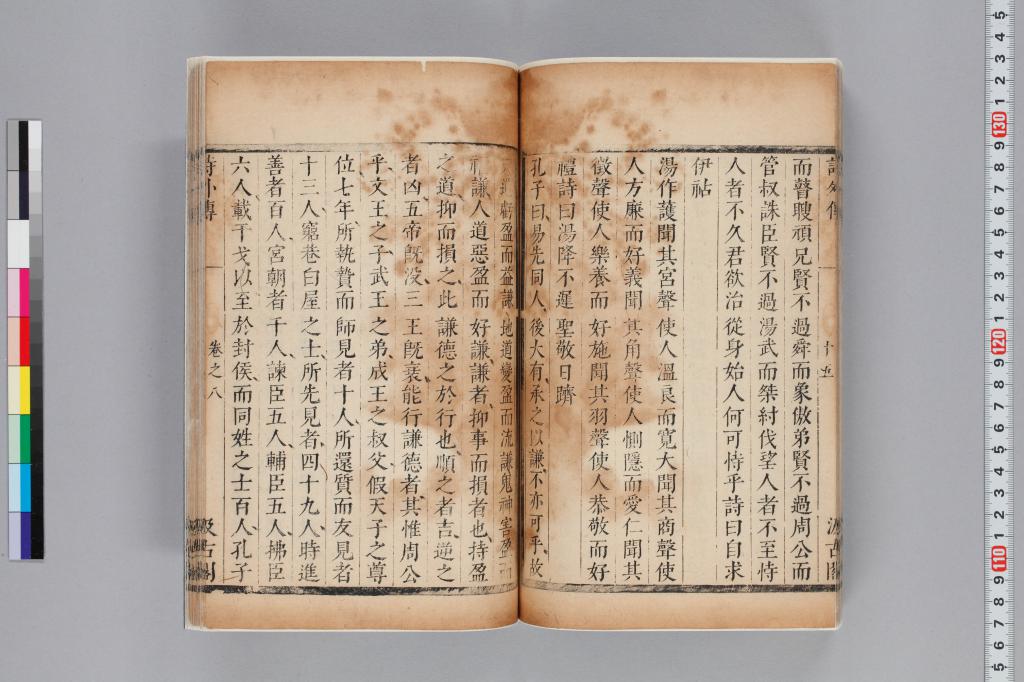 而瞽瞍頑兄賢不過舜而象傲弟賢不過周公而
管叔誅臣賢不過湯武而桀紂伐望人者不至恃
人者不久君欲治從身始人何可恃乎詩曰自求
伊祜
湯作護聞其宮聲使人溫良而寬大聞其商聲使
人方廉而好義聞其角聲使人惻隱而愛仁聞其
徵聲使人樂養而好施聞其羽聲使人恭敬而好
禮詩曰湯降不遲聖敬日躋
孔子曰易先同人後大有承之以謙不亦可乎故
虧盈而益謙地道變盈而流謙鬼神害盈而
謙人道惡盈而好謙謙者抑事而損者也持盈
之道抑而損之此謙德之於行也順之者吉逆之
者凶五帝旣沒三王旣衰能行謙德者其惟周公
乎文王之子武王之弟成王之叔父假天子之尊
位七年所執贄而師見者十人所還質而友見者
十三人窮巷白屋之士所先見者四十九人時進
善者百人宮朝者千人諫臣五人輔臣五人拂臣
六人載干戈以至於封侯而同姓之士百人孔子
詩外傳
卷之八
汲古閣